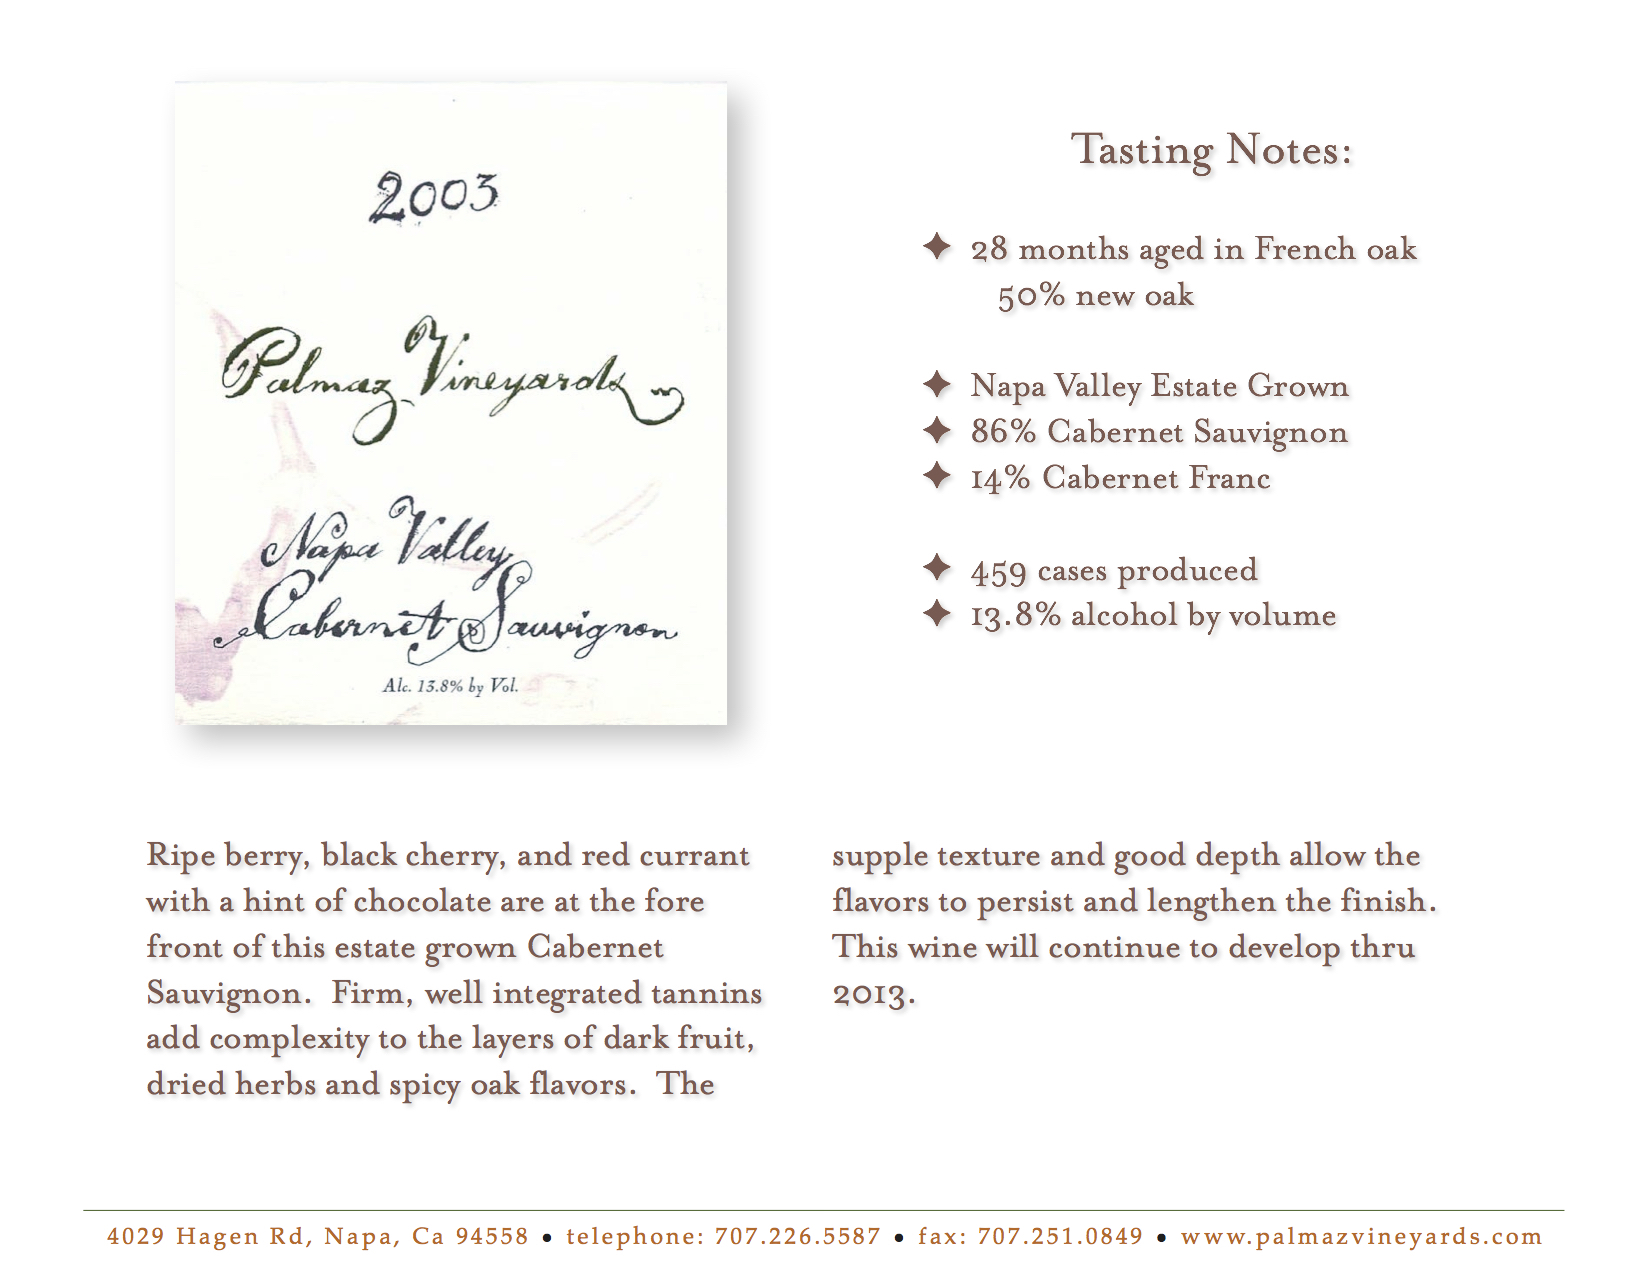 2003
Palmaz Vineyards
Napa Valley
Cabernet Sauvignon
Alc. 13.8% by Vol.
Tasting Notes:
✦ 28 months aged in French oak
50% new oak
✦ Napa Valley Estate Grown
✦ 86% Cabernet Sauvignon
✦ 14% Cabernet Franc
✦ 459 cases produced
✦ 13.8% alcohol by volume
Ripe berry, black cherry, and red currant
with a hint of chocolate are at the fore
front of this estate grown Cabernet
Sauvignon.  Firm, well integrated tannins
add complexity to the layers of dark fruit,
dried herbs and spicy oak flavors.  The
supple texture and good depth allow the
flavors to persist and lengthen the finish.
This wine will continue to develop thru
2013.
4029 Hagen Rd, Napa, Ca 94558 • telephone: 707.226.5587 • fax: 707.251.0849 • www.palmazvineyards.com